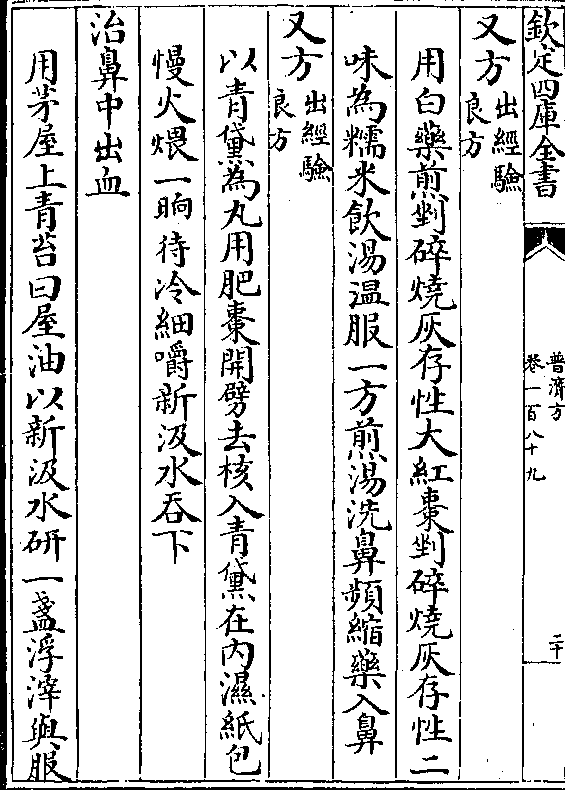 欽定四庫全書
普濟方
卷一百八十九
二十
又方出經驗
良方
用白藥煎剉碎燒灰存性大紅棗剉碎燒灰存性二
味為糯米飲湯温服一方煎湯洗鼻頻縮藥入鼻
又方出經驗
良方
以青黛為丸用肥棗開劈去核入青黛在内濕紙包
慢火煨一晌待冷細嚼新汲水吞下
治鼻中出血
用茅屋上青苔曰屋油以新汲水研一盞浮滓與服